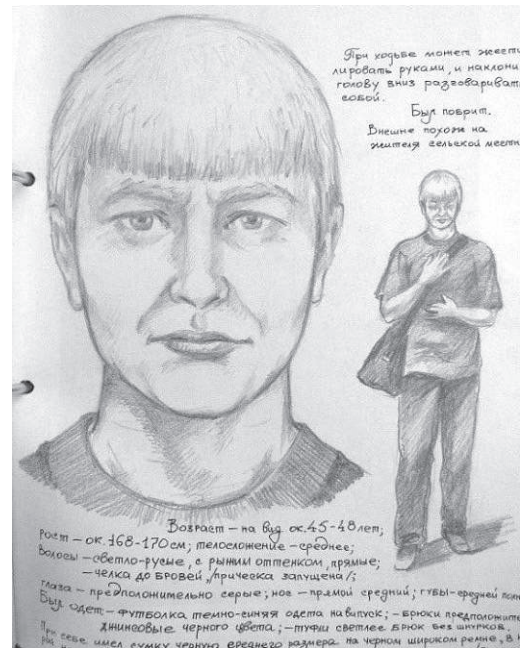 При ходьбе может жести
лировать руками, и наклони
голову вниз разговариват
собой.
Был побрит.
Внешне похож на
жителя сельской местн
Возраст – на вид ок. 45-48 лет;
Рост – ок. 168-170 см; телосложение – среднее;
Волосы – светло-русые, с рыжим оттенком, прямые;
– челка до бровей /прическа запущена/;
глаза – предположительно серые; нос – прямой средний; губы – средней полн
Был одет – футболка темно-синяя одета на выпуск; – брюки предположите
джинсовые черного цвета; – туфли светлее брюк без шнурков.
При себе имел сумку черную среднего размера на черном широком ремне, в